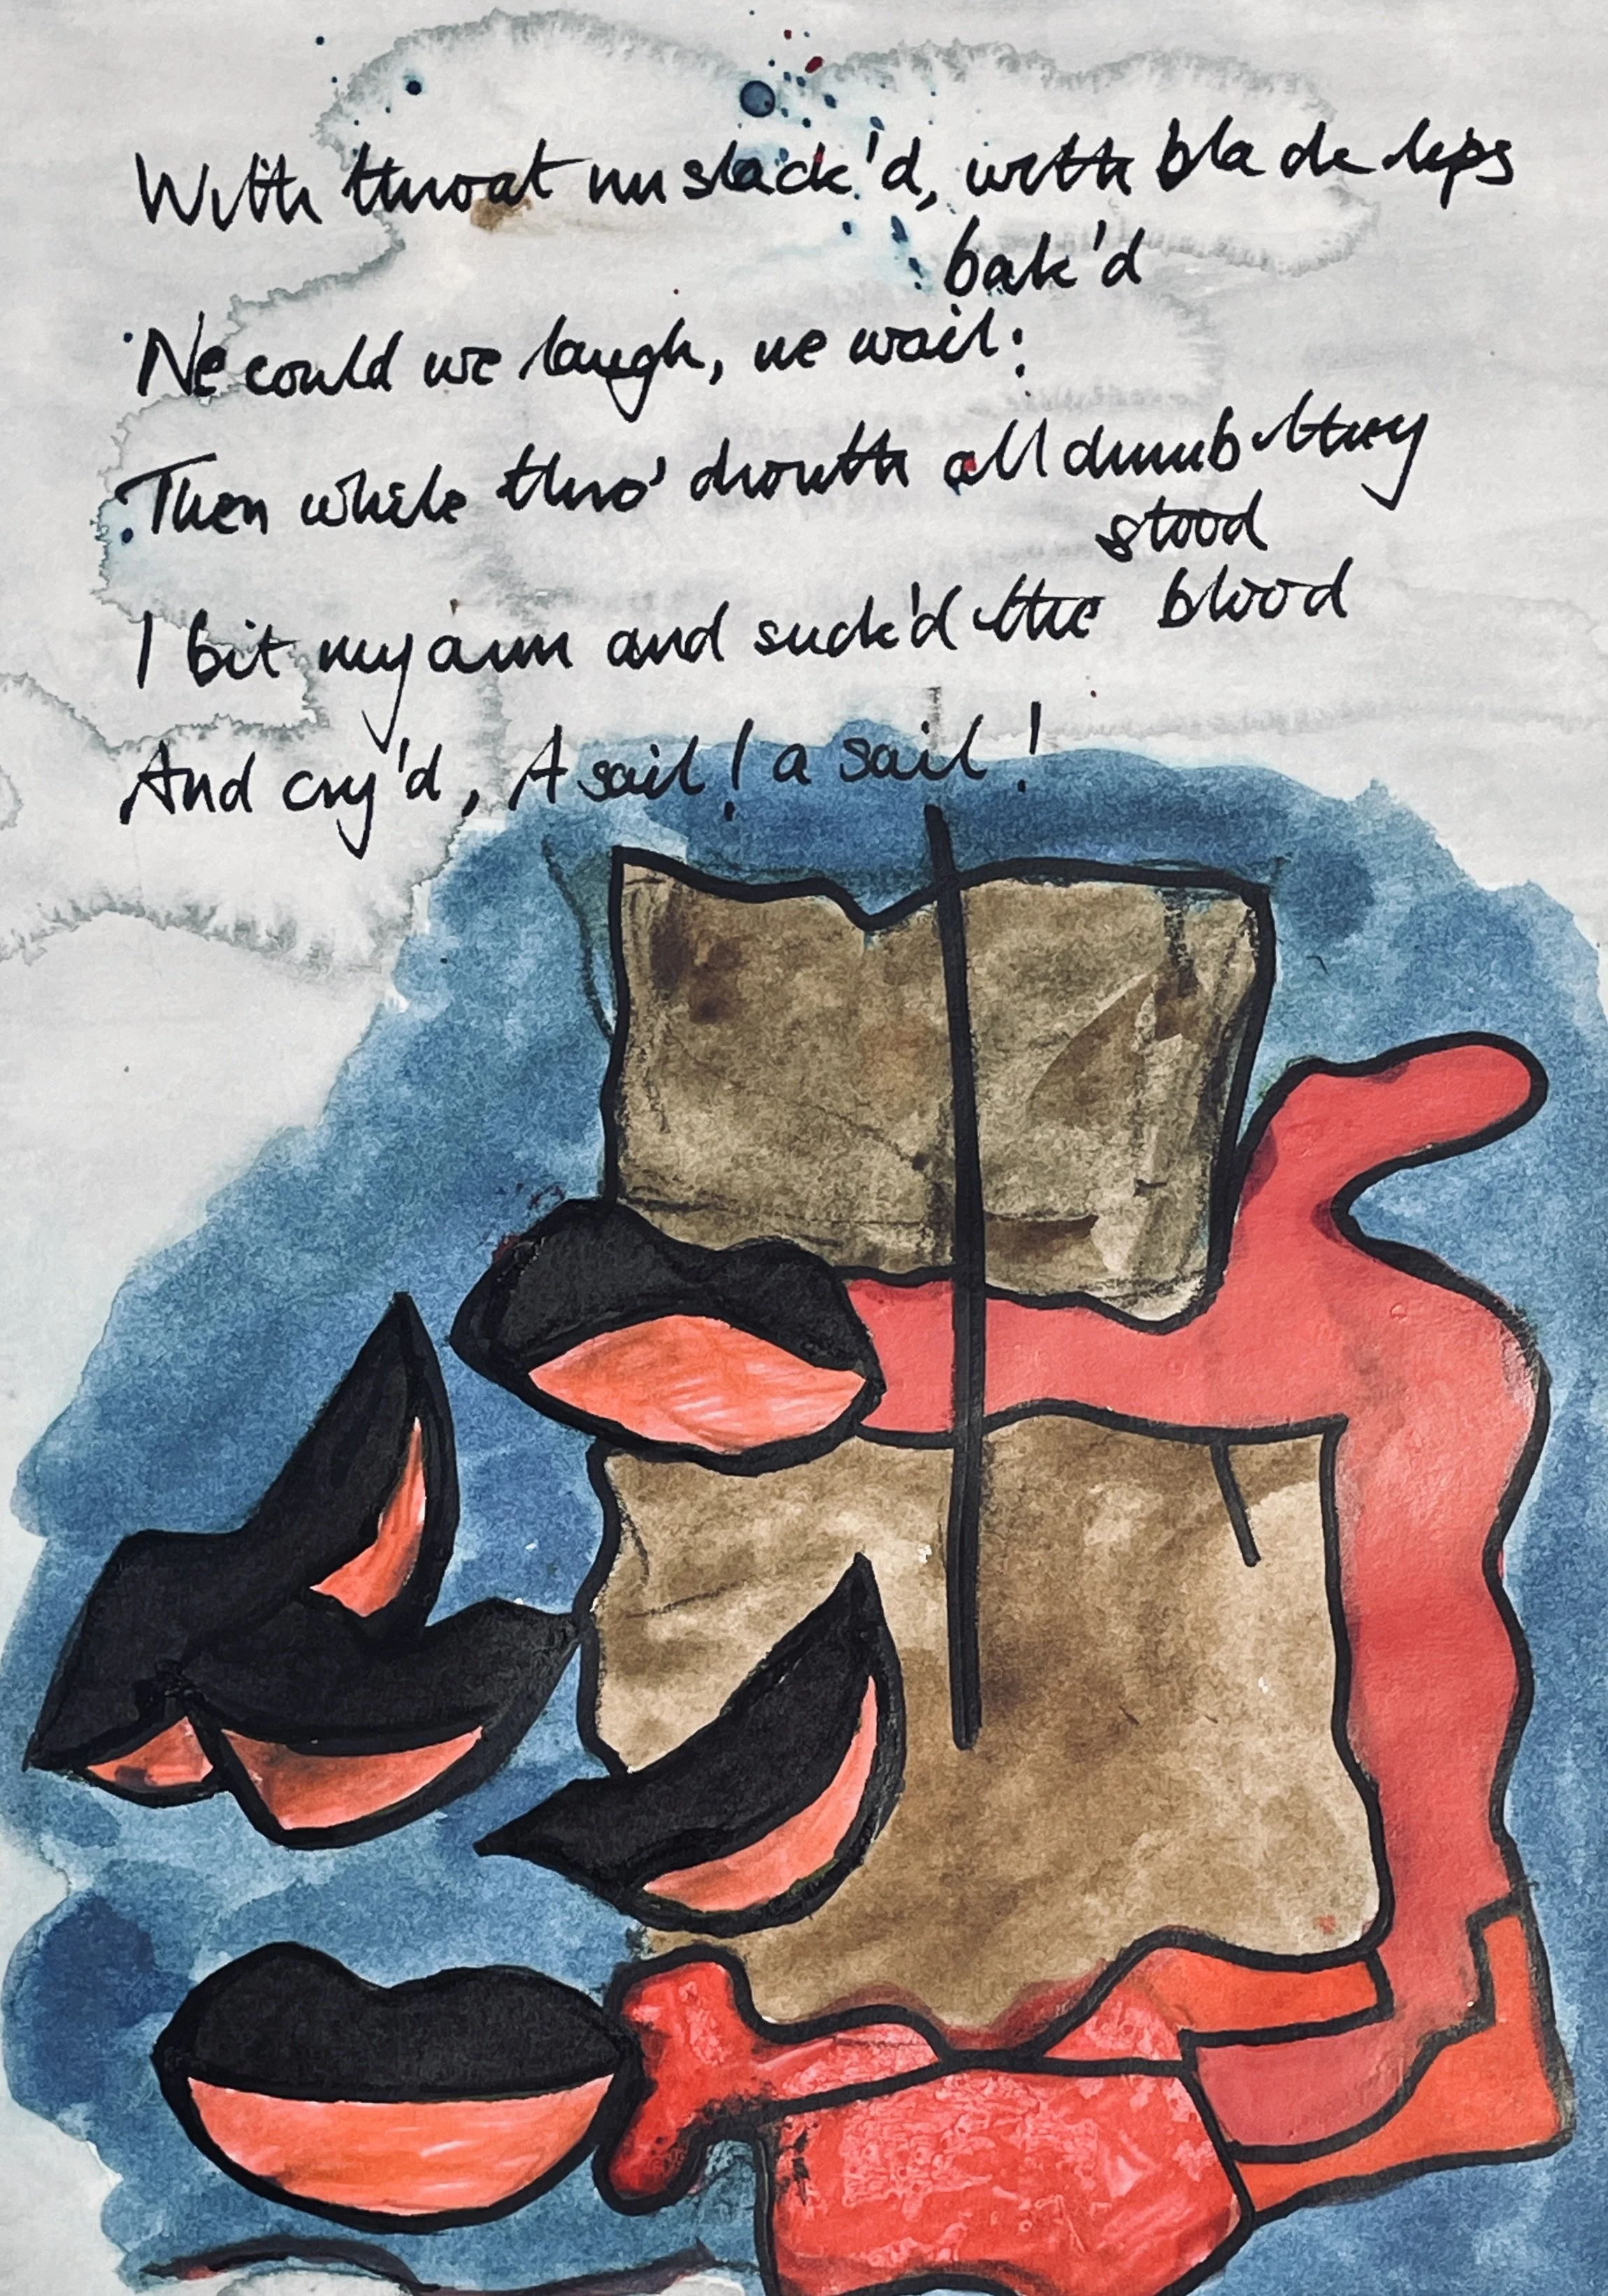 With throat unslack'd, with black lips
bak'd
Ne could we laugh, ne wail:
Then while thro' drouth all dumb they
stood
I bit my arm and suck'd the blood
And cry'd, A sail! a sail!